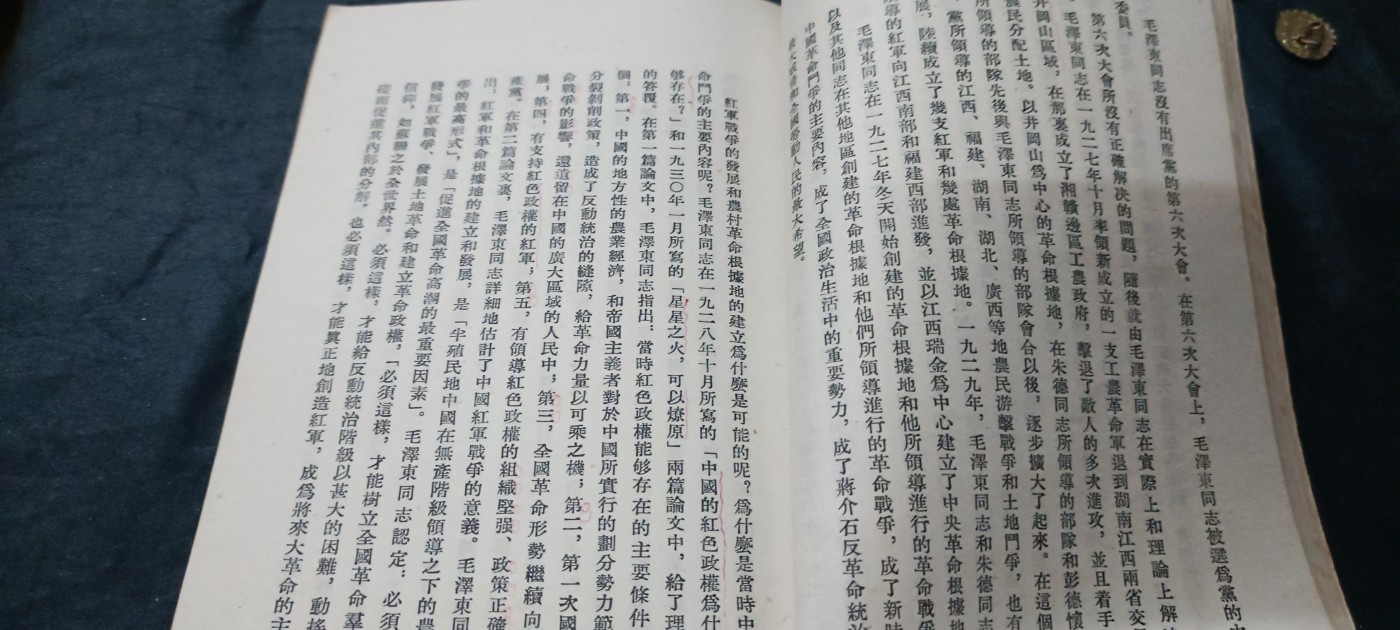 毛澤東同志沒有出席黨的第六次大會。在第六次大會上，毛澤東同志被選爲黨的中
委員。
第六次大會所沒有正確解決的問題，隨後就由毛澤東同志在實際上和理論上解
毛澤東同志在一九二七年十月率領新成立的一支工農革命軍退到湖南江西兩省交
井岡山區域，在那裏成立了湘贛邊區工農政府，擊退了敵人的多次進攻，並且着手
農民分配土地。以井岡山爲中心的革命根據地，在朱德同志所領導的部隊和彭德懷
所領導的部隊先後與毛澤東同志所領導的部隊會合以後，逐步擴大了起來。在這個
黨所領導的江西、福建、湖南、湖北、廣西等地農民游擊戰爭和土地鬥爭，也有
展，陸續成立了幾支紅軍和幾處革命根據地。一九二九年，毛澤東同志和朱德同志
領導的紅軍向江西南部和福建西部進發，並以江西瑞金爲中心建立了中央革命根據地
毛澤東同志在一九二七年冬天開始創建的革命根據地和他所領導進行的革命戰爭
以及其他同志在其他地區創建的革命根據地和他們所領導進行的革命戰爭，成了新時
中國革命鬥爭的主要內容，成了全國政治生活中的重要勢力，成了蔣介石反革命統治
人民的最大希望。
紅軍戰爭的發展和農村革命根據地的建立爲什麼是可能的呢？爲什麼是當時中
命鬥爭的主要內容呢？毛澤東同志在一九二八年十月所寫的「中國的紅色政權爲什
够存在？」和一九三〇年一月所寫的「星星之火，可以燎原」兩篇論文中，給了理
的答覆。在第一篇論文中，毛澤東同志指出：當時紅色政權能够存在的主要條件
個：第一，中國的地方性的農業經濟，和帝國主義者對於中國所實行的劃分勢力範
分裂剝削政策，造成了反動統治的縫隙，給革命力量以可乘之機；第二，第一次國
命戰爭的影響，還遺留在中國的廣大區域的人民中；第三，全國革命形勢繼續向
展；第四，有支持紅色政權的紅軍；第五，有領導紅色政權的組織堅强、政策正確
產黨。在第二篇論文裏，毛澤東同志詳細地估計了中國紅軍戰爭的意義。毛澤東同
出，紅軍和革命根據地的建立和發展，是「半殖民地中國在無產階級領導之下的農
爭的最高形式」，是「促進全國革命高潮的最重要因素」。毛澤東同志認定：必須
發展紅軍戰爭、發展土地革命和建立革命政權，「必須這樣，才能樹立全國革命羣
信仰，如蘇聯之於全世界然。必須這樣，才能給反動統治階級以甚大的困難，動搖
從而促進其內部的分解。也必須這樣，才能眞正地創造紅軍，成爲將來大革命的主